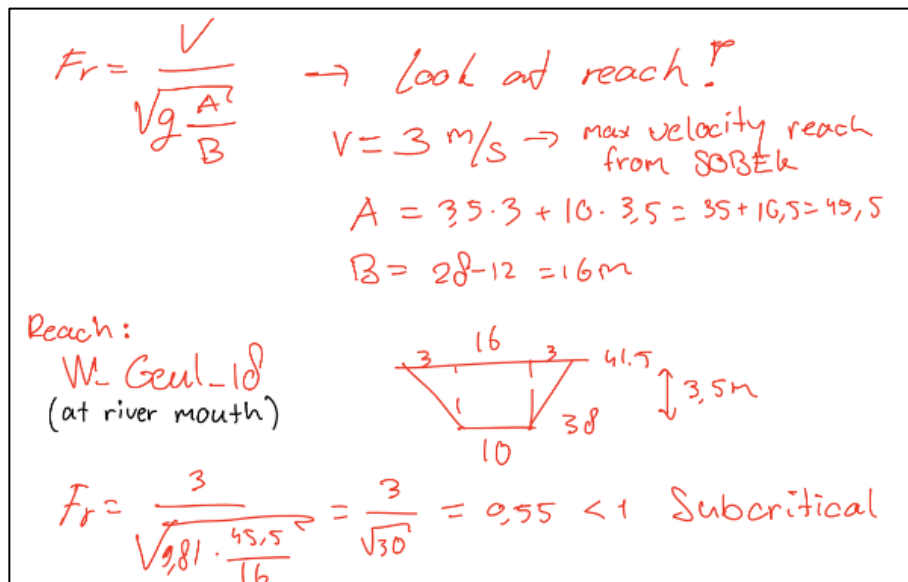 Fr = V / √(g A/B) → Look at reach!
V = 3 m/s → max velocity reach
from SOBEK
A = 3,5·3 + 10·3,5 = 35 + 10,5 = 45,5
B = 28-12 = 16m
Reach:
W_Geul_18
(at river mouth)
16
3 3 41.5
3,5m
38
10
Fr = 3 / √(9,81 · 45,5/16) = 3/√30 = 0,55 < 1 Subcritical